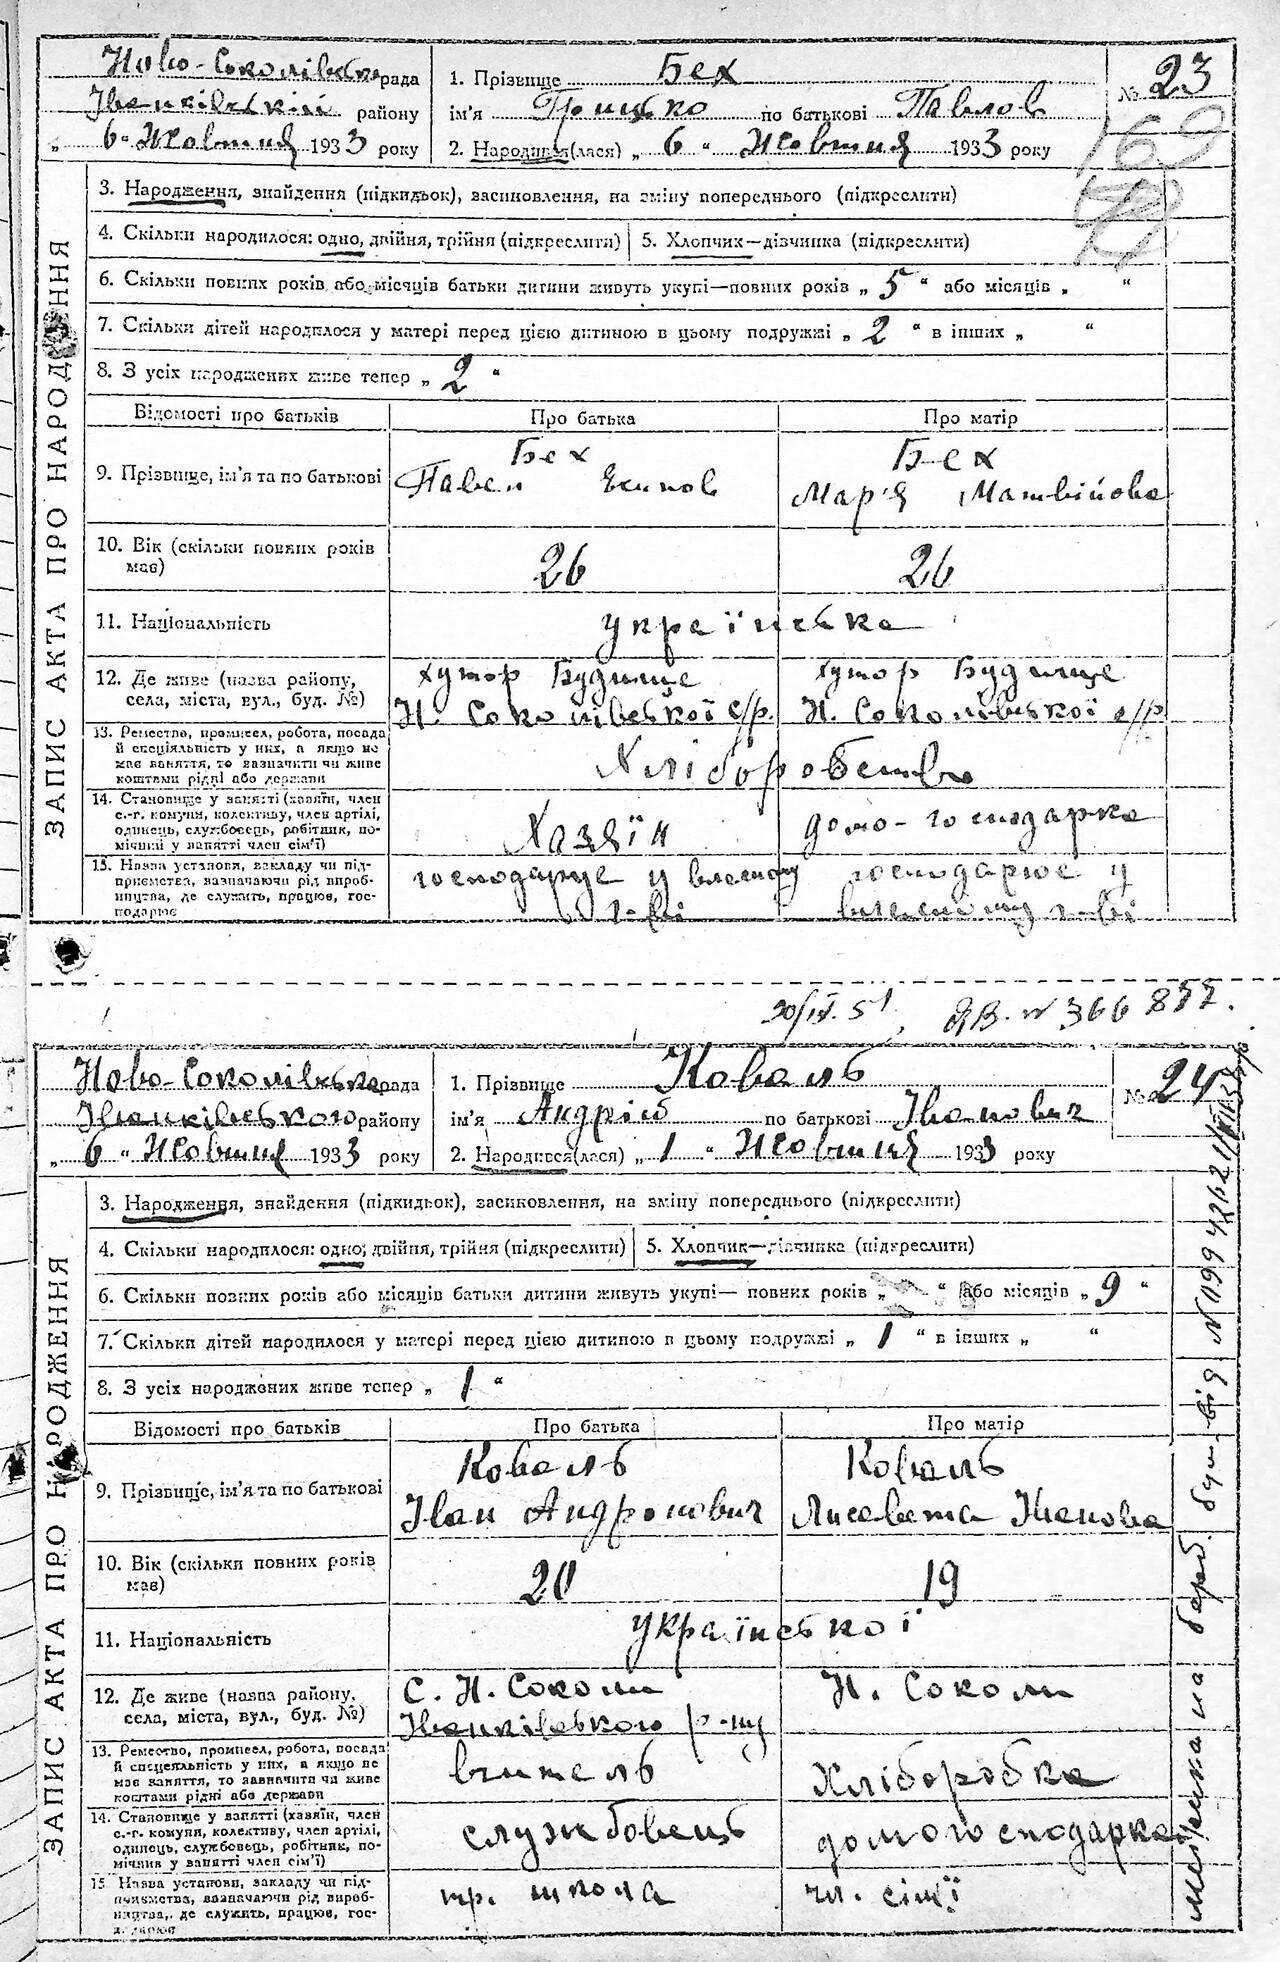 Ново-Соколівська рада
Іванківський району
„ 6 " Жовтня 1933 року
1. Прізвище Бех
ім'я Грицько по батькові Павлов
2. Народився(лася) „ 6 " Жовтня 1933 року
№ 23
169
ЗАПИС АКТА ПРО НАРОДЖЕННЯ
3. Народження, знайдення (підкидьок), засиновлення, на зміну попереднього (підкреслити)
4. Скільки народилося: одно, двійня, трійня (підкреслити) 5. Хлопчик—дівчинка (підкреслити)
6. Скільки повних років або місяців батьки дитини живуть укупі—повних років „ 5 " або місяців „ "
7. Скільки дітей народилося у матері перед цією дитиною в цьому подружжі „ 2 " в інших „ "
8. З усіх народжених живе тепер „ 2 "
Відомості про батьків Про батька Про матір
9. Прізвище, ім'я та по батькові
Бех
Павел
Бех
Мар'я Матвійова
10. Вік (скільки повних років має)
26 26
11. Національність
українська
12. Де живе (назва району,
села, міста, вул., буд. №)
хутор Будище
Н. Соколівської с/р.
хутор Будище
Н. Соколівської с/р
13. Ремество, промисел, робота, посада
й спеціяльність у них, а якщо не
має заняття, то зазначити чи живе
коштами рідні або держави
Хліборобство
14. Становище у занятті (хазяїн, член
с.-г. комуни, колективу, член артілі,
одинець, службовець, робітник, по-
мічний у занятті член сім'ї)
Хазяїн
домо-господарка
15. Назва установи, закладу чи під-
приємства, зазначаючи рід вироб-
ництва, де служить, працює, гос-
подарює
господарує у власному
г-ві
господарює у
власному г-ві
30/IV. 51 ЯВ. № 366877.
Ново-Соколівська рада
Іванківського району
„ 6 " Жовтня 1933 року
1. Прізвище Коваль
ім'я Андрій по батькові Іванович
2. Народився(лася) „ 1 " Жовтня 1933 року
№ 24
ЗАПИС АКТА ПРО НАРОДЖЕННЯ
3. Народження, знайдення (підкидьок), засиновлення, на зміну попереднього (підкреслити)
4. Скільки народилося: одно, двійня, трійня (підкреслити) 5. Хлопчик—дівчинка (підкреслити)
6. Скільки повних років або місяців батьки дитини живуть укупі— повних років „ " або місяців „ 9 "
7. Скільки дітей народилося у матері перед цією дитиною в цьому подружжі „ 1 " в інших „ "
8. З усіх народжених живе тепер „ 1 "
Відомості про батьків Про батька Про матір
9. Прізвище, ім'я та по батькові
Коваль
Іван Андронович
Коваль
Лисавета Іванова
10. Вік (скільки повних років має)
20 19
11. Національність
української
12. Де живе (назва району,
села, міста, вул., буд. №)
С. Н. Соколи
Іванківського р-ну
Н. Соколи
13. Ремество, промисел, робота, посада
й спеціяльність у них, а якщо не
має заняття, то зазначити чи живе
коштами рідні або держави
вчитель
Хліборобка
14. Становище у занятті (хазяїн, член
с.-г. комуни, колективу, член артілі,
одинець, службовець, робітник, по-
мічник у занятті член сім'ї)
службовець
домогосподарка
15. Назва установи, закладу чи під-
приємства, зазначаючи рід вироб-
ництва, де служить, працює, гос-
подарює
тр. школа
чл. сім'ї